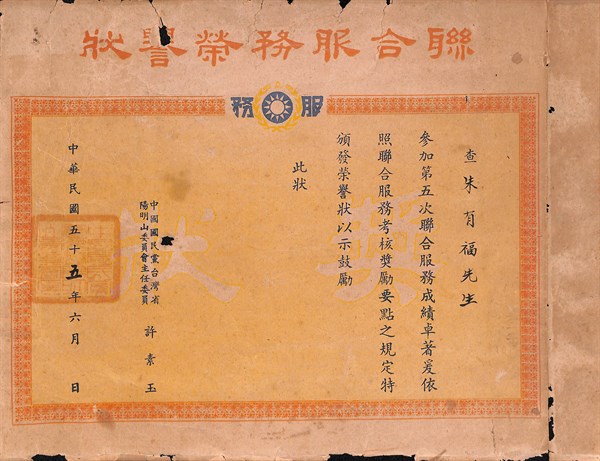 聯合服務榮譽狀
服務
獎狀
查朱有福先生
參加第五次聯合服務成績卓著爰依
照聯合服務考核獎勵要點之規定特
頒發榮譽狀以示鼓勵
此狀
中國國民黨台灣省
陽明山委員會主任委員
許素玉
中華民國五十五年六月 日